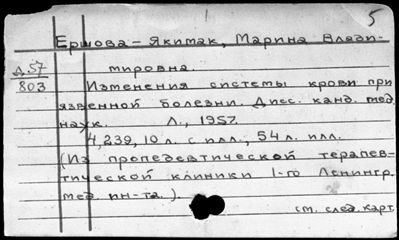 5
Ершова-Якимак, Марина Влади-
Д.57
803
мировна.
Изменения системы крови при
язвенной болезни. Дисс. канд. мед.
наук. Л., 1957.
4,239,10 л. с илл., 54 л. илл.
(Из пропедевтической терапев-
тической клиники 1-го Ленингр.
мед. ин-та.).
см. след. карт.